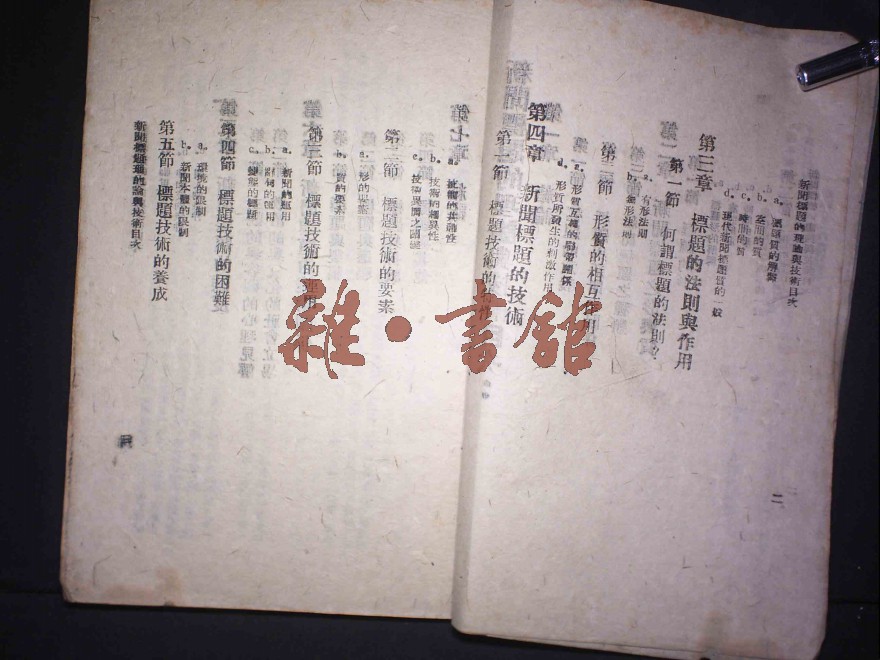 新聞標題的理論與技術目次
a. 標題質的解釋
b. 空間的質
c. 時間的質
d. 現代新聞標題質的一般
第三章 標題的法則與作用
第一節 何謂標題的法則？
a. 有形法則
b. 無形法則
第二節 形質的相互作用
形質互換的聯帶關係
d. 形質所發生的刺激作用
二
第四章 新聞標題的技術
第一節 標題技術的共性
a. 技術的共通性
b. 技術的獨異性
c. 技術異同之關鍵
第二節 標題技術的要素
a. 形的要素
b. 質的要素
第三節 標題技術的運用
a. 新聞的運用
b. 辭句的運用
c. 變態的標題
第四節 標題技術的困難
a. 環境的限制
b. 新聞本體的限制
第五節 標題技術的養成
新聞標題的理論與技術目次
雜·書館